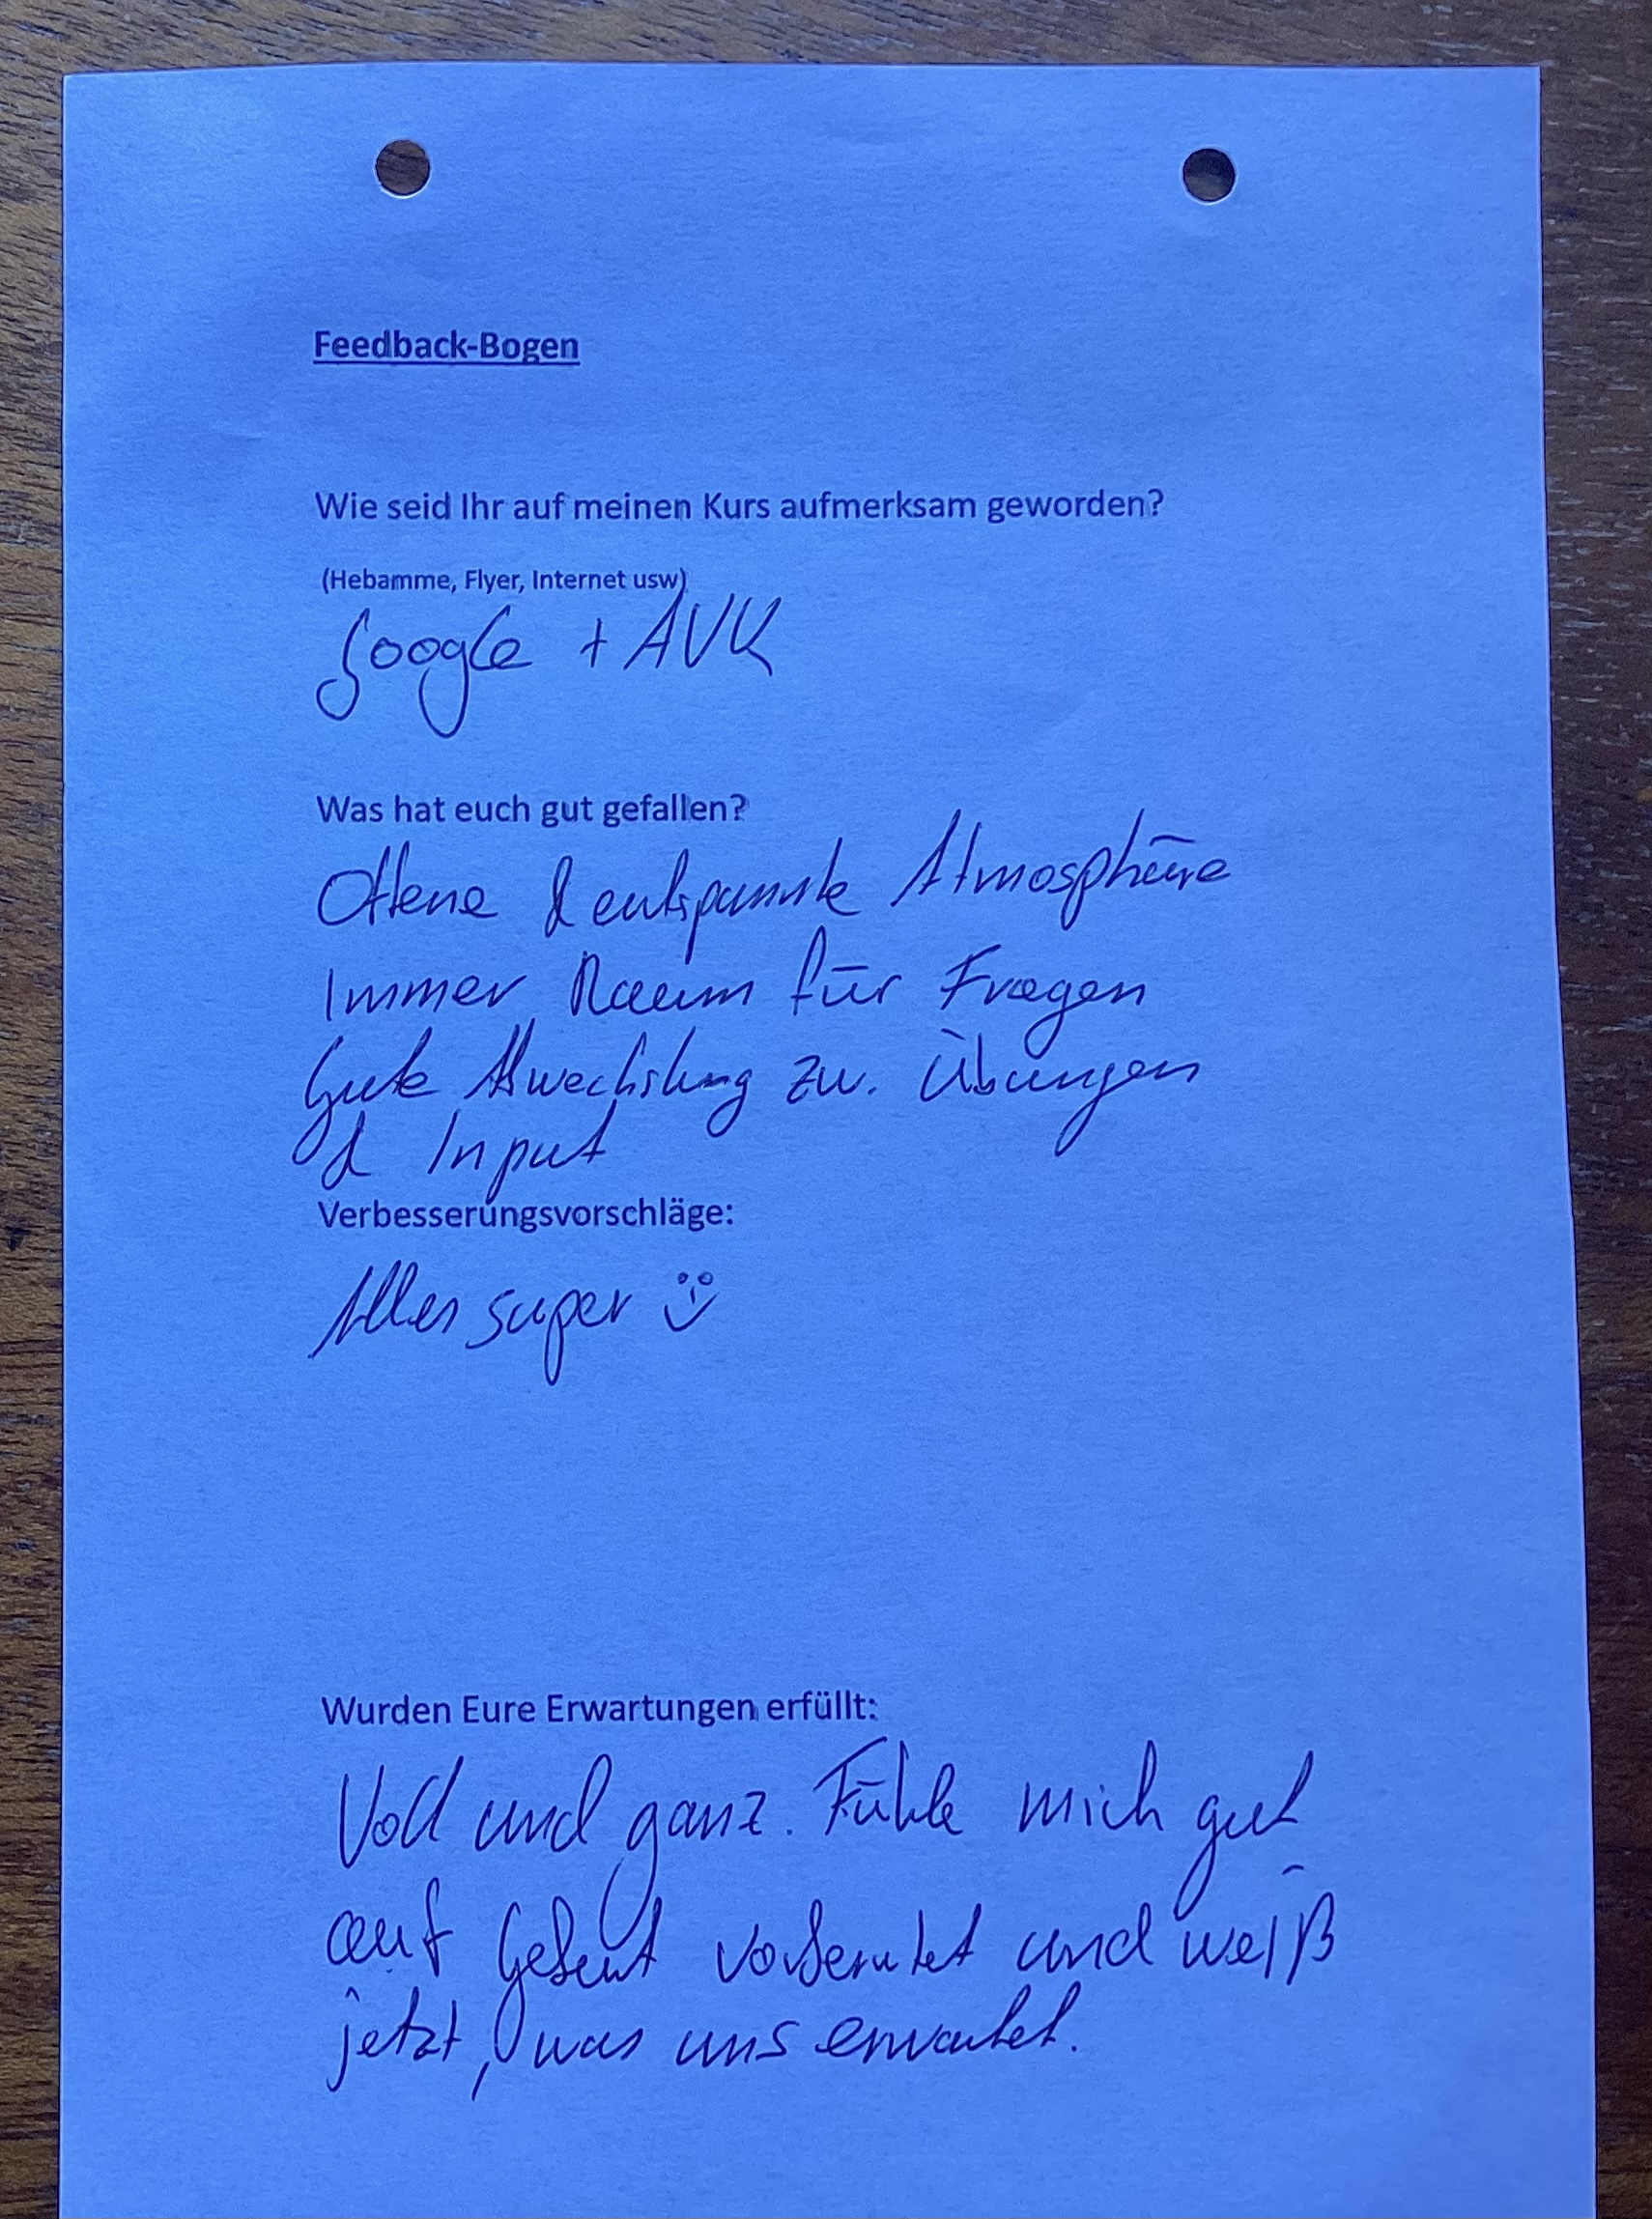 Feedback-Bogen
Wie seid Ihr auf meinen Kurs aufmerksam geworden?
(Hebamme, Flyer, Internet usw)
Google + AVK
Was hat euch gut gefallen?
Offene & entspannte Atmosphäre
Immer Raum für Fragen
Gute Abwechslung zw. Übungen
& Input
Verbesserungsvorschläge:
Alles super :)
Wurden Eure Erwartungen erfüllt:
Voll und ganz. Fühle mich gut
auf Geburt vorbereitet und weiß
jetzt, was uns erwartet.